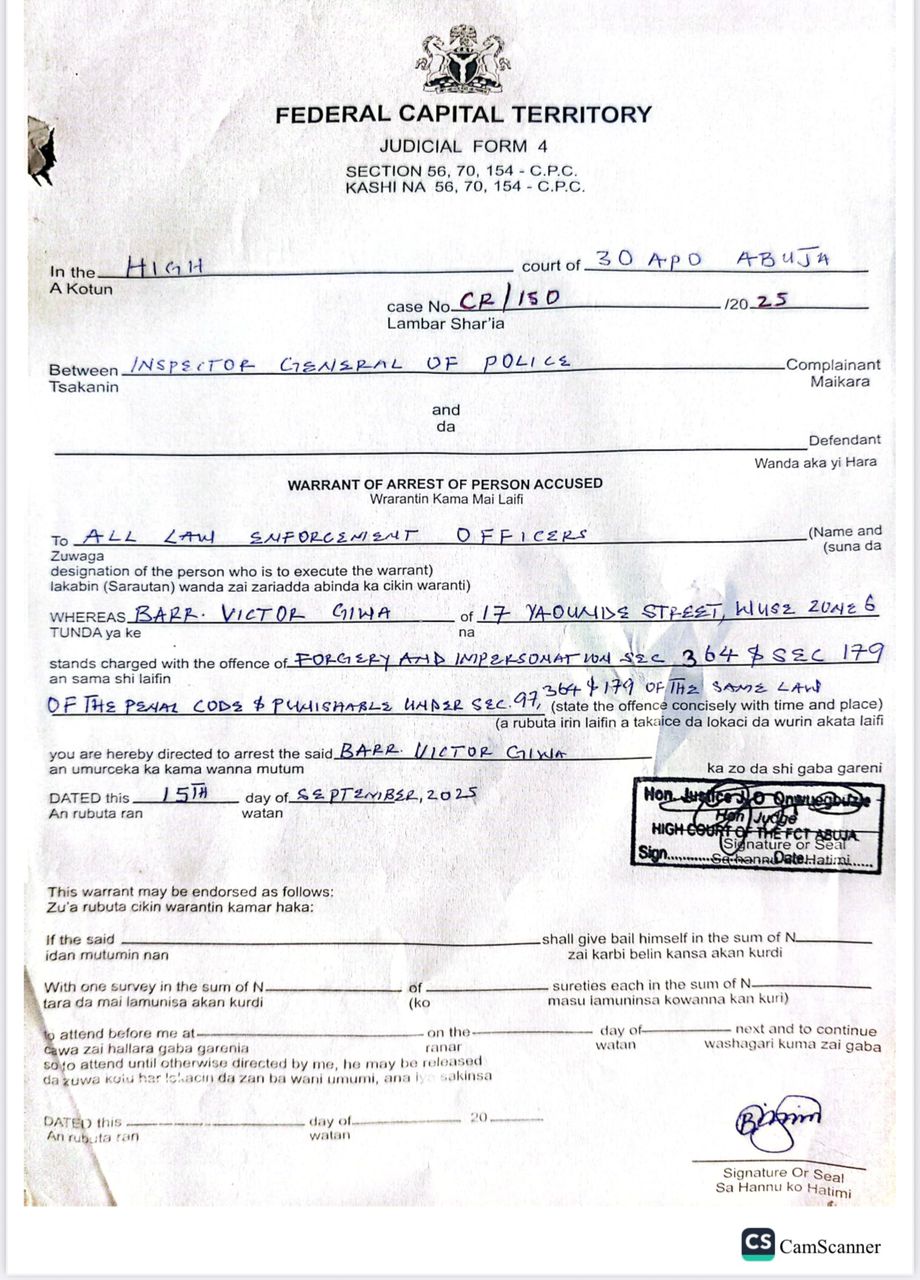 FEDERAL CAPITAL TERRITORY
JUDICIAL FORM 4
SECTION 56, 70, 154 - C.P.C.
KASHI NA 56, 70, 154 - C.P.C.
In the HIGH court of 30 APO ABUJA
A Kotun
case No. CR/150 /2025
Lambar Shar'ia
Between INSPECTOR GENERAL OF POLICE Complainant
Tsakanin Maikara
and
da
Defendant
Wanda aka yi Hara
WARRANT OF ARREST OF PERSON ACCUSED
Wrarantin Kama Mai Laifi
To ALL LAW ENFORCEMENT OFFICERS (Name and
Zuwaga (suna da
designation of the person who is to execute the warrant)
lakabin (Sarautan) wanda zai zariadda abinda ka cikin waranti)
WHEREAS BARR. VICTOR GIWA of 17 YAOUNDE STREET, WUSE ZONE 6
TUNDA ya ke na
stands charged with the offence of FORGERY AND IMPERSONATION SEC 364 & SEC 179
an sama shi laifin
OF THE PENAL CODE & PUNISHABLE UNDER SEC. 97, 364 & 179 OF THE SAME LAW
(state the offence concisely with time and place)
(a rubuta irin laifin a takaice da lokaci da wurin akata laifi
you are hereby directed to arrest the said BARR. VICTOR GIWA
an umurceka ka kama wanna mutum ka zo da shi gaba gareni
DATED this 15TH day of SEPTEMBER, 2025
An rubuta ran watan
Hon. Justice J.O Onwuegbuzie
Hon Judge
HIGH COURT OF THE FCT ABUJA
Signature or Seal
Sign. Date
Sa hannu Hatimi
This warrant may be endorsed as follows:
Zu'a rubuta cikin warantin kamar haka:
If the said shall give bail himself in the sum of N
idan mutumin nan zai karbi belin kansa akan kurdi
With one survey in the sum of N of sureties each in the sum of N
tara da mai lamunisa akan kurdi (ko masu lamuninsa kowanna kan kuri)
to attend before me at on the day of next and to continue
cawa zai hallara gaba garenia ranar watan washagari kuma zai gaba
so to attend until otherwise directed by me, he may be released
da zuwa har da zan ba wani umumi, ana iya sakinsa
DATED this day of 20
An rubuta ran watan
Signature Or Seal
Sa Hannu ko Hatimi
CS CamScanner